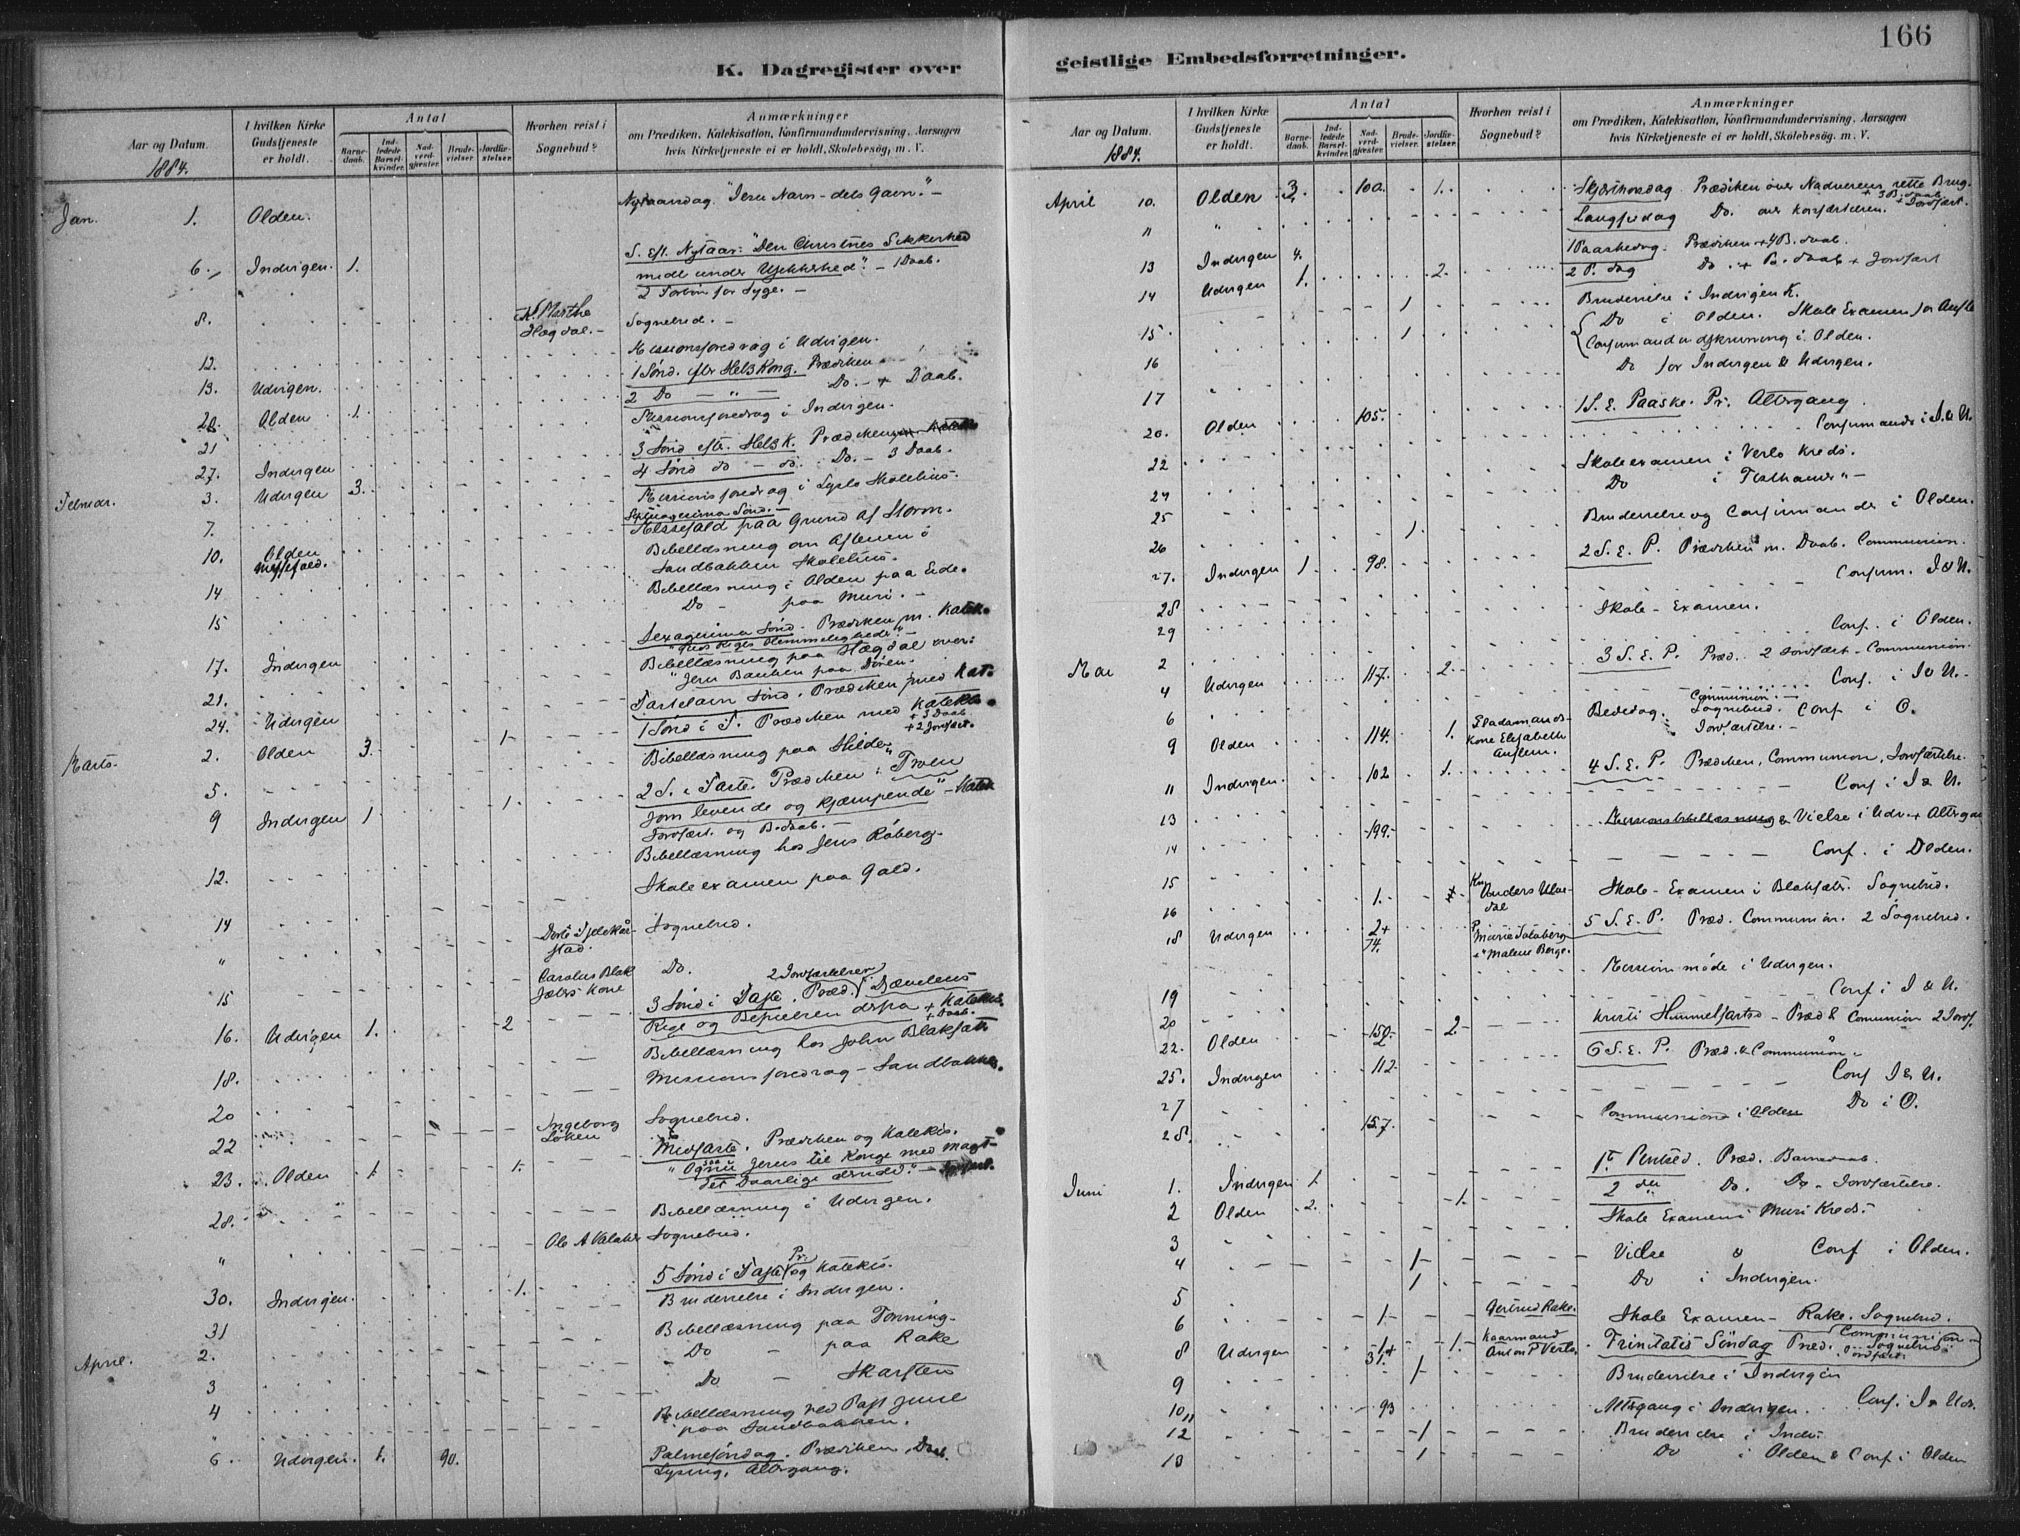 166
K. Dagregister over
geistlige Embedsforretninger.
Aar og Datum.
1884.
I hvilken Kirke Gudstjeneste er holdt.
Antal
Barnedaab.
Indledede Barselkvinder.
Nadverdgjæster.
Brudevielser.
Jordfæstelser.
Hvorhen reist i Sognebud?
Anmærkninger
om Prædiken, Katekisation, Konfirmandundervisning, Aarsagen
hvis Kirketjeneste ei er holdt, Skolebesøg, m. V.
Jan. 1. Olden. Nytaarsdag. "Jesu Navn - dets Gavn." -
6. Indvigen. 1. S. Eft. Nytaar: "Den Christnes Sikkerhed
midt under Usikkerhed". - 1 Daab.
2 Forbøn for Syge. -
8. Marthe Hægdal. - Sognebud. -
12. Missionsforedrag i Udvigen.
13. Udvigen. 1 Sønd. eftr Hel3Kong. Prædiken
20. Olden 1. 2 Do - " - Do. - + Daab.
21 Missionsforedrag i Indvigen.
27. Indvigen 3 Sønd eftr. Hel3K. Prædiken
Februar. 3. Udvigen 3. 4 Sønd do - do. Do. - 3 Daab.
7. Missionsforedrag i Skolehus.
Septuagesima Sønd. -
10. Olden Messefald. Messefald paa Grund af Storm.
Bibellæsning om Aftenen i
Sandbakken Skolehus.
14 Bibellæsning i Olden paa Eide.
15 Do - paa Muri. -
17. Indvigen Sexagesima Sønd. Prædiken m. Katek.
"Guds Riges Hemmeligheder". -
21. Bibellæsning paa Hægdal over:
"Jesu Banken paa Døren.
24. Udvigen Fastelavn Sønd. Prædiken med Kat.
Marts. 2. Olden 3. 1- 1 Sønd i F. Prædiken med Katekis.
+ 3 Daab
+ 2 Jordfæst.
5. Bibellæsning paa Hilde
9 Indvigen 1 1. 2 S. i Faste. Prædiken: "Troen
som levende og kjæmpende" - Katek
Jordfæst. og B.daab. -
12. Bibellæsning hos Jens Råberg.
14 Skoleexamen paa Gald.
" Sognebud.
15 Carolus Blak Jælrs Kone Do.
2 Jordfæstelser
16. Udvigen 1. 2 3 Sønd i Faste. Præd. Djævelens
Rige og Befrielsen derfra + Katekis.
+ Daab.
18. Bibellæsning hos John Blakset
20 Missionsforedrag - Sandbakken.
22 Ingeborg Løken Sognebud.
23. Olden 1. 1. Midfaste. Prædiken og Katekis.
"Og nu Jesus til Konge med Magt-
det Daarlige derved" -
28. Bibellæsning i Udvigen.
" Sognebud.
30. Indvigen. 1. 5 Sønd i Faste Pr. og Katekis.
31 Brudevielse i Indvigen.
April. 2. Bibellæsning paa Tonning-
3 Do - paa Rake
4 Do - Skarsten
" Bibellæsning ved Past Juul
paa Sandbakken.
6. Udvigen. 1. 90. Palmesøndag. Prædiken, Daab.
Lysning, Altergang.
Aar og Datum.
1884.
I hvilken Kirke Gudstjeneste er holdt.
Antal
Barnedaab.
Indledede Barselkvinder.
Nadverdgjæster.
Brudevielser.
Jordfæstelser.
Hvorhen reist i Sognebud?
Anmærkninger
om Prædiken, Katekisation, Konfirmandundervisning, Aarsagen
hvis Kirketjeneste ei er holdt, Skolebesøg, m. V.
April 10. Olden 3. 100. 1. Skjærthorsdag. Prædiken over Nadverens rette Brug.
+ 3 B.daab
+ Jordfæst.
11 " Langfredag Do. over
13 Indvigen 4. 1 Paaskedag. Prædiken + 4 B.daab.
14 Udvigen 1. 2. 2 P. dag Do. + B. daab + Jordfæst
15. 1 Brudevielse i Indvigen K.
16 1 Do i Olden. Skole Examen for
Confirmandudskrivning i Olden.
17 Do for Indvigen & Udvigen.
20. Olden 105. 1 S. E. Paaske. Pr. Altergang.
22 Confirmander i I. & U.
24 Skoleexamen i Verlo Kreds.
25 Do i "-
26 1. Brudevielse og Confirmander i Olden.
27. Indvigen 1 98. 2 S. E. P. Prædiken m. Daab. Communion.
28 Confirm. I & U.
29 Skole - Examen.
Mai 2 Conf. i Olden.
4 Udvigen 117. 2. 3 S. E. P. Præd. 2 Jordfæst - Communion.
6 Conf. i I & U. -
9 Olden 114. 1. Kone Elisabeth Bededag. Communion. - Sognebud. Jordfæstelse. - Conf i O.
11 Indvigen. 102 1. 4 S. E. P. Prædiken, Communion, Jordfæstelse.
13 Conf. i I & U.
14 199. Vielse i Udv. + Altergan
15 Conf. i Olden.
16 1. Anders Skole - Examen i Blaksæt. Sognebud.
18 Udvigen 2 + 74. Malene Berge. 5 S. E. P. Præd. Communion. 2 Sognebud.
19 Mission møde i Udvigen.
20 Conf i I & U.
22. Olden 150. 2. Kristi Himmelfartsd - Præd & Communion 2 Jordf.
25. Indvigen 112. 6 S. E. P. Præd. & Communion.
27 Conf I & U.
28. 157. Communion i Olden Do i O.
Juni 1. Indvigen 1. 1t Pintsed. Præd. Barnedaab.
2 Olden 2. 1. 2 den " Do. Do. Jordfæstelse.
3 Skole Examen i Muri Kreds.
4 1 Vielse & Conf i Olden.
5 1 Do i Indvigen.
6 1. Gertrud Rake. Skole Examen - Rake. Sognebud.
8 Udvigen 1 + 31. 1. Kaarmand Anton P Verlo. Trinitatis Søndag Præd. Communion Sognebud Jordfæst.
9 1 Brudevielse i Indvigen
10 11 93 Altergang i Indvigen. Conf. I & Udv.
12 1 Brudevielse i Indv.
13 1 Do i Olden & Conf i Olden